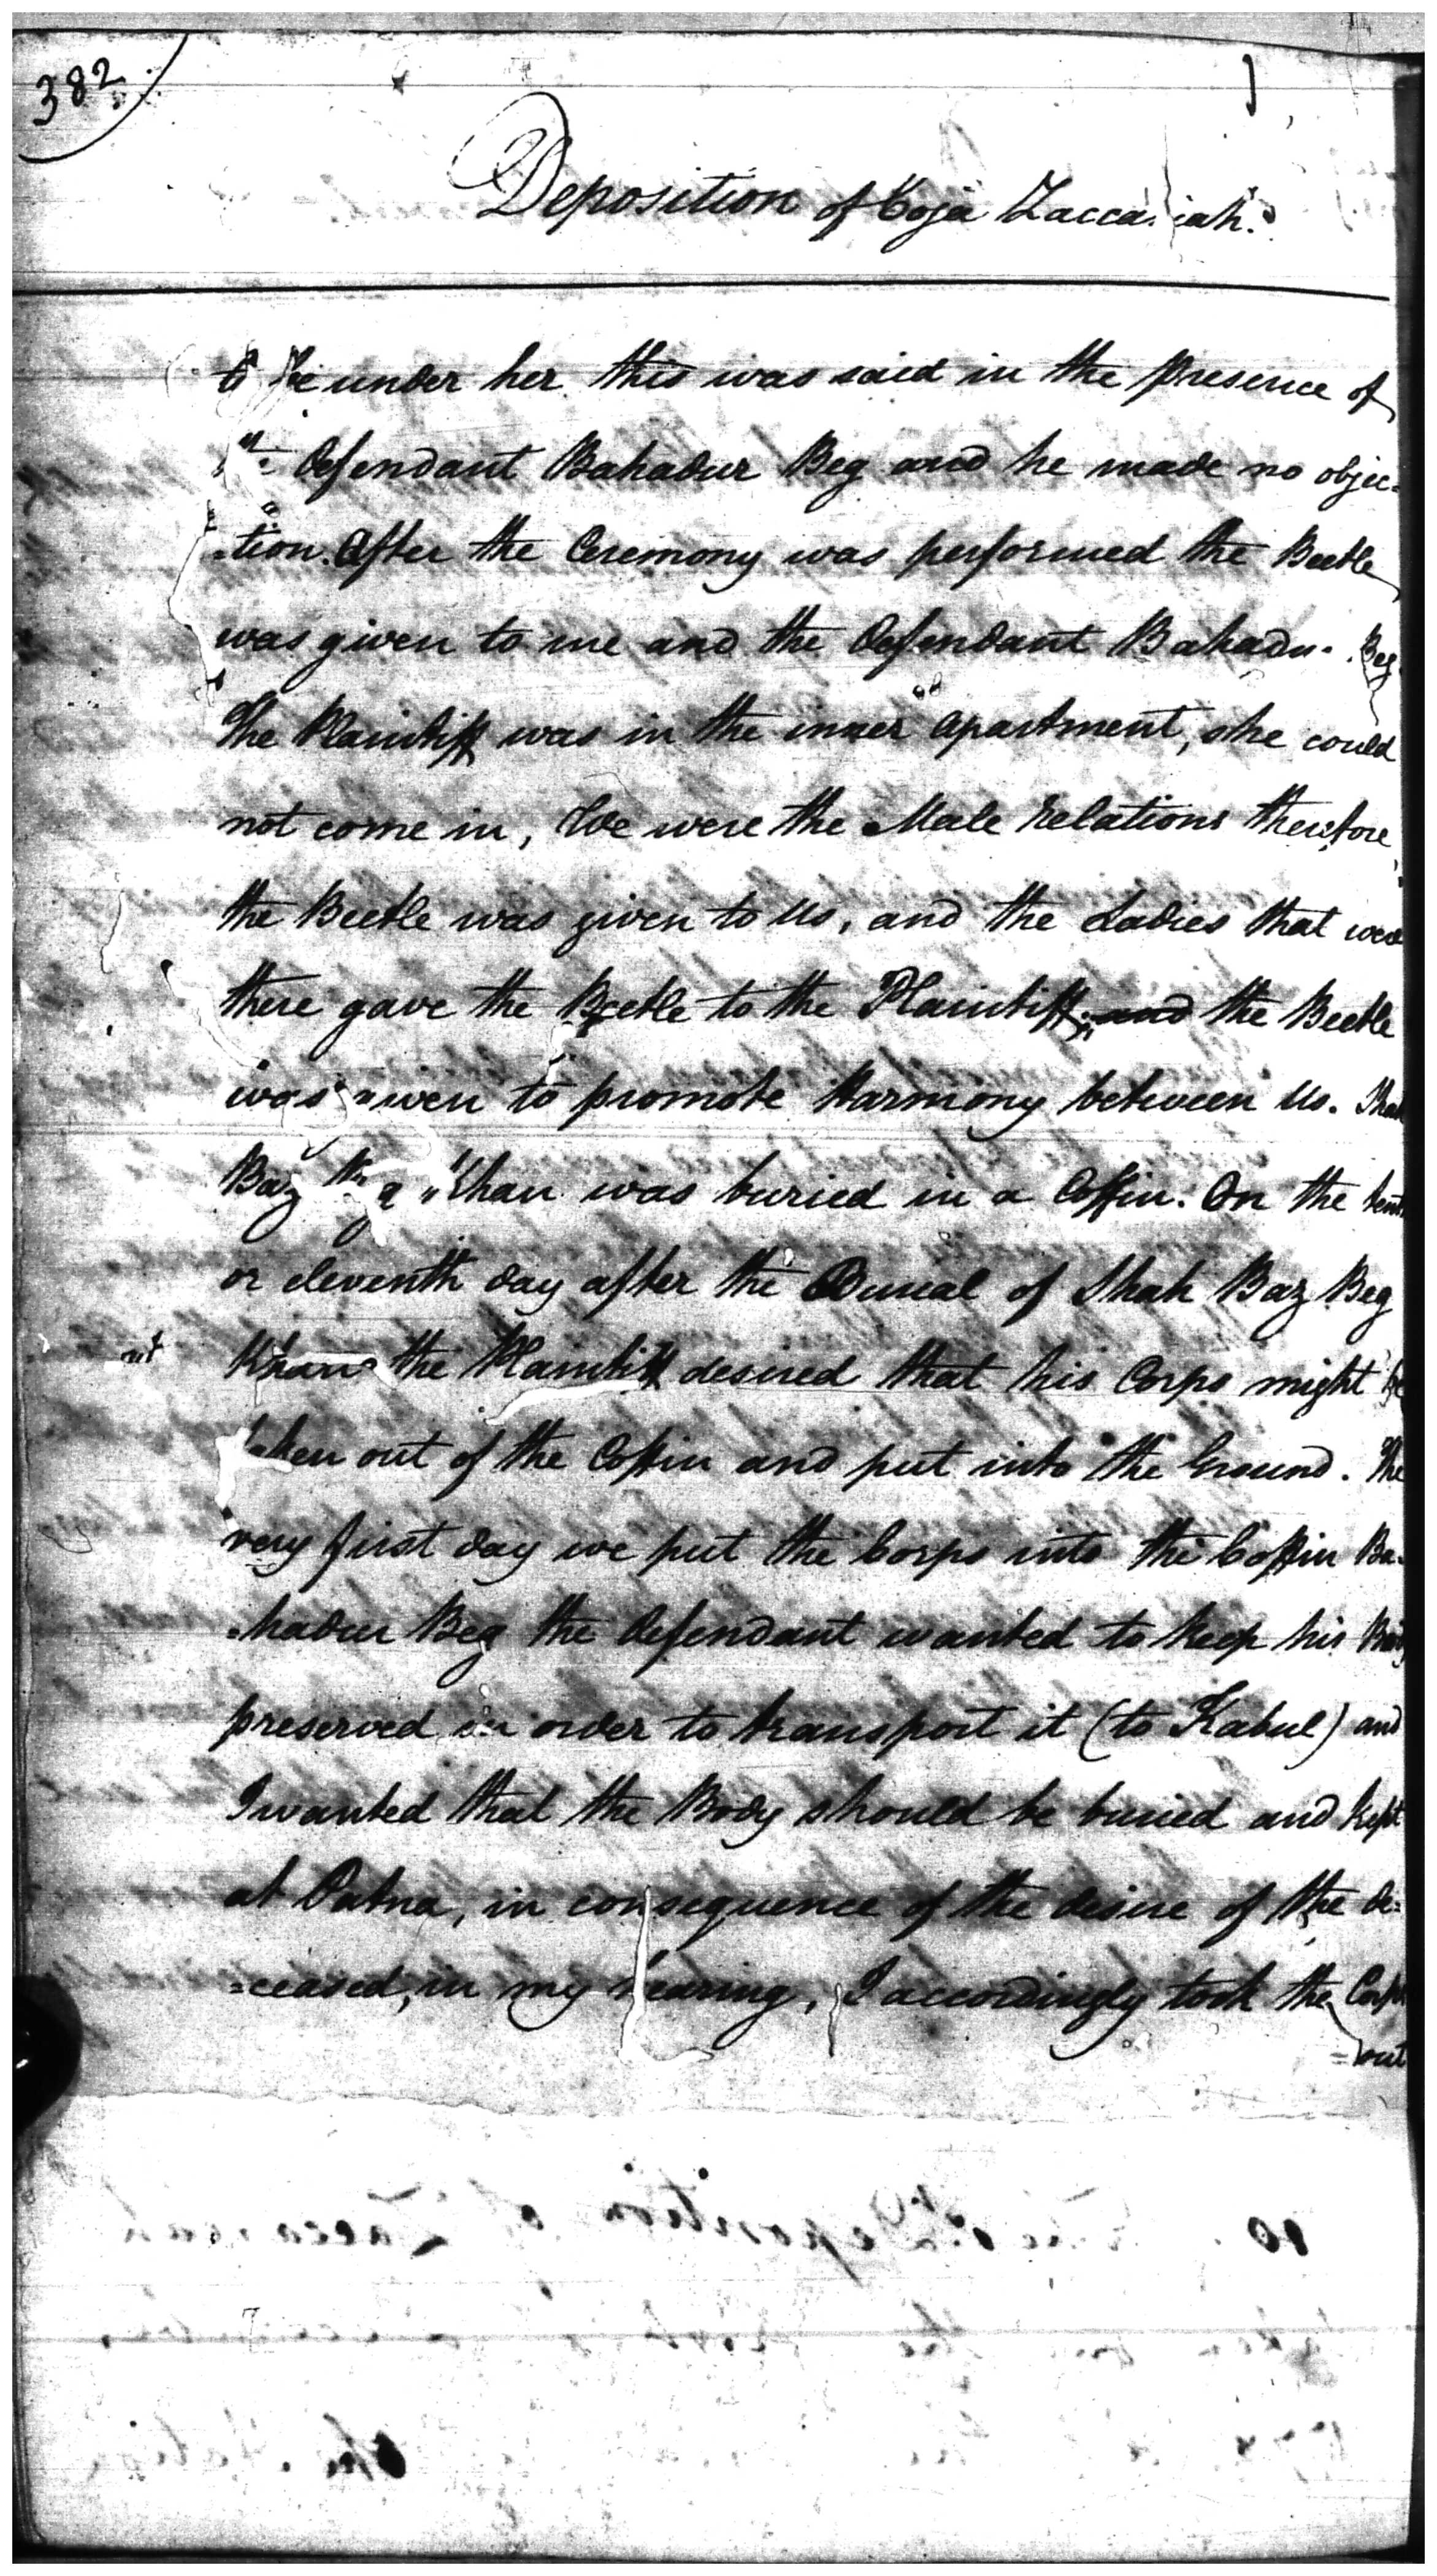 382
Deposition of Coja Zaccariah.
to be under her this was said in the presence of
the Defendant Bahadur Beg and he made no objec=
=tion. After the Ceremony was performed the Beetle
was given to me and the Defendant Bahadur Beg.
The Plaintiff was in the inner apartment, she could
not come in, We were the Male relations therefore
the Beetle was given to us, and the Ladies that were
there gave the Beetle to the Plaintiff; and the Beetle
was given to promote Harmony between us. Shah
Baz Beg Khan was buried in a Coffin. On the tenth
or eleventh day after the Burial of Shah Baz Beg
Khan the Plaintiff desired that his Corps might be
taken out of the Coffin and put into the Ground. The
very first day we put the Corps into the Coffin Ba=
=hadur Beg the Defendant wanted to keep his Body
preserved in order to transport it (to Kabul) and
I wanted that the Body should be buried and kept
at Patna, in consequence of the desire of the de=
=ceased, in my hearing, I accordingly took the Corps
=out